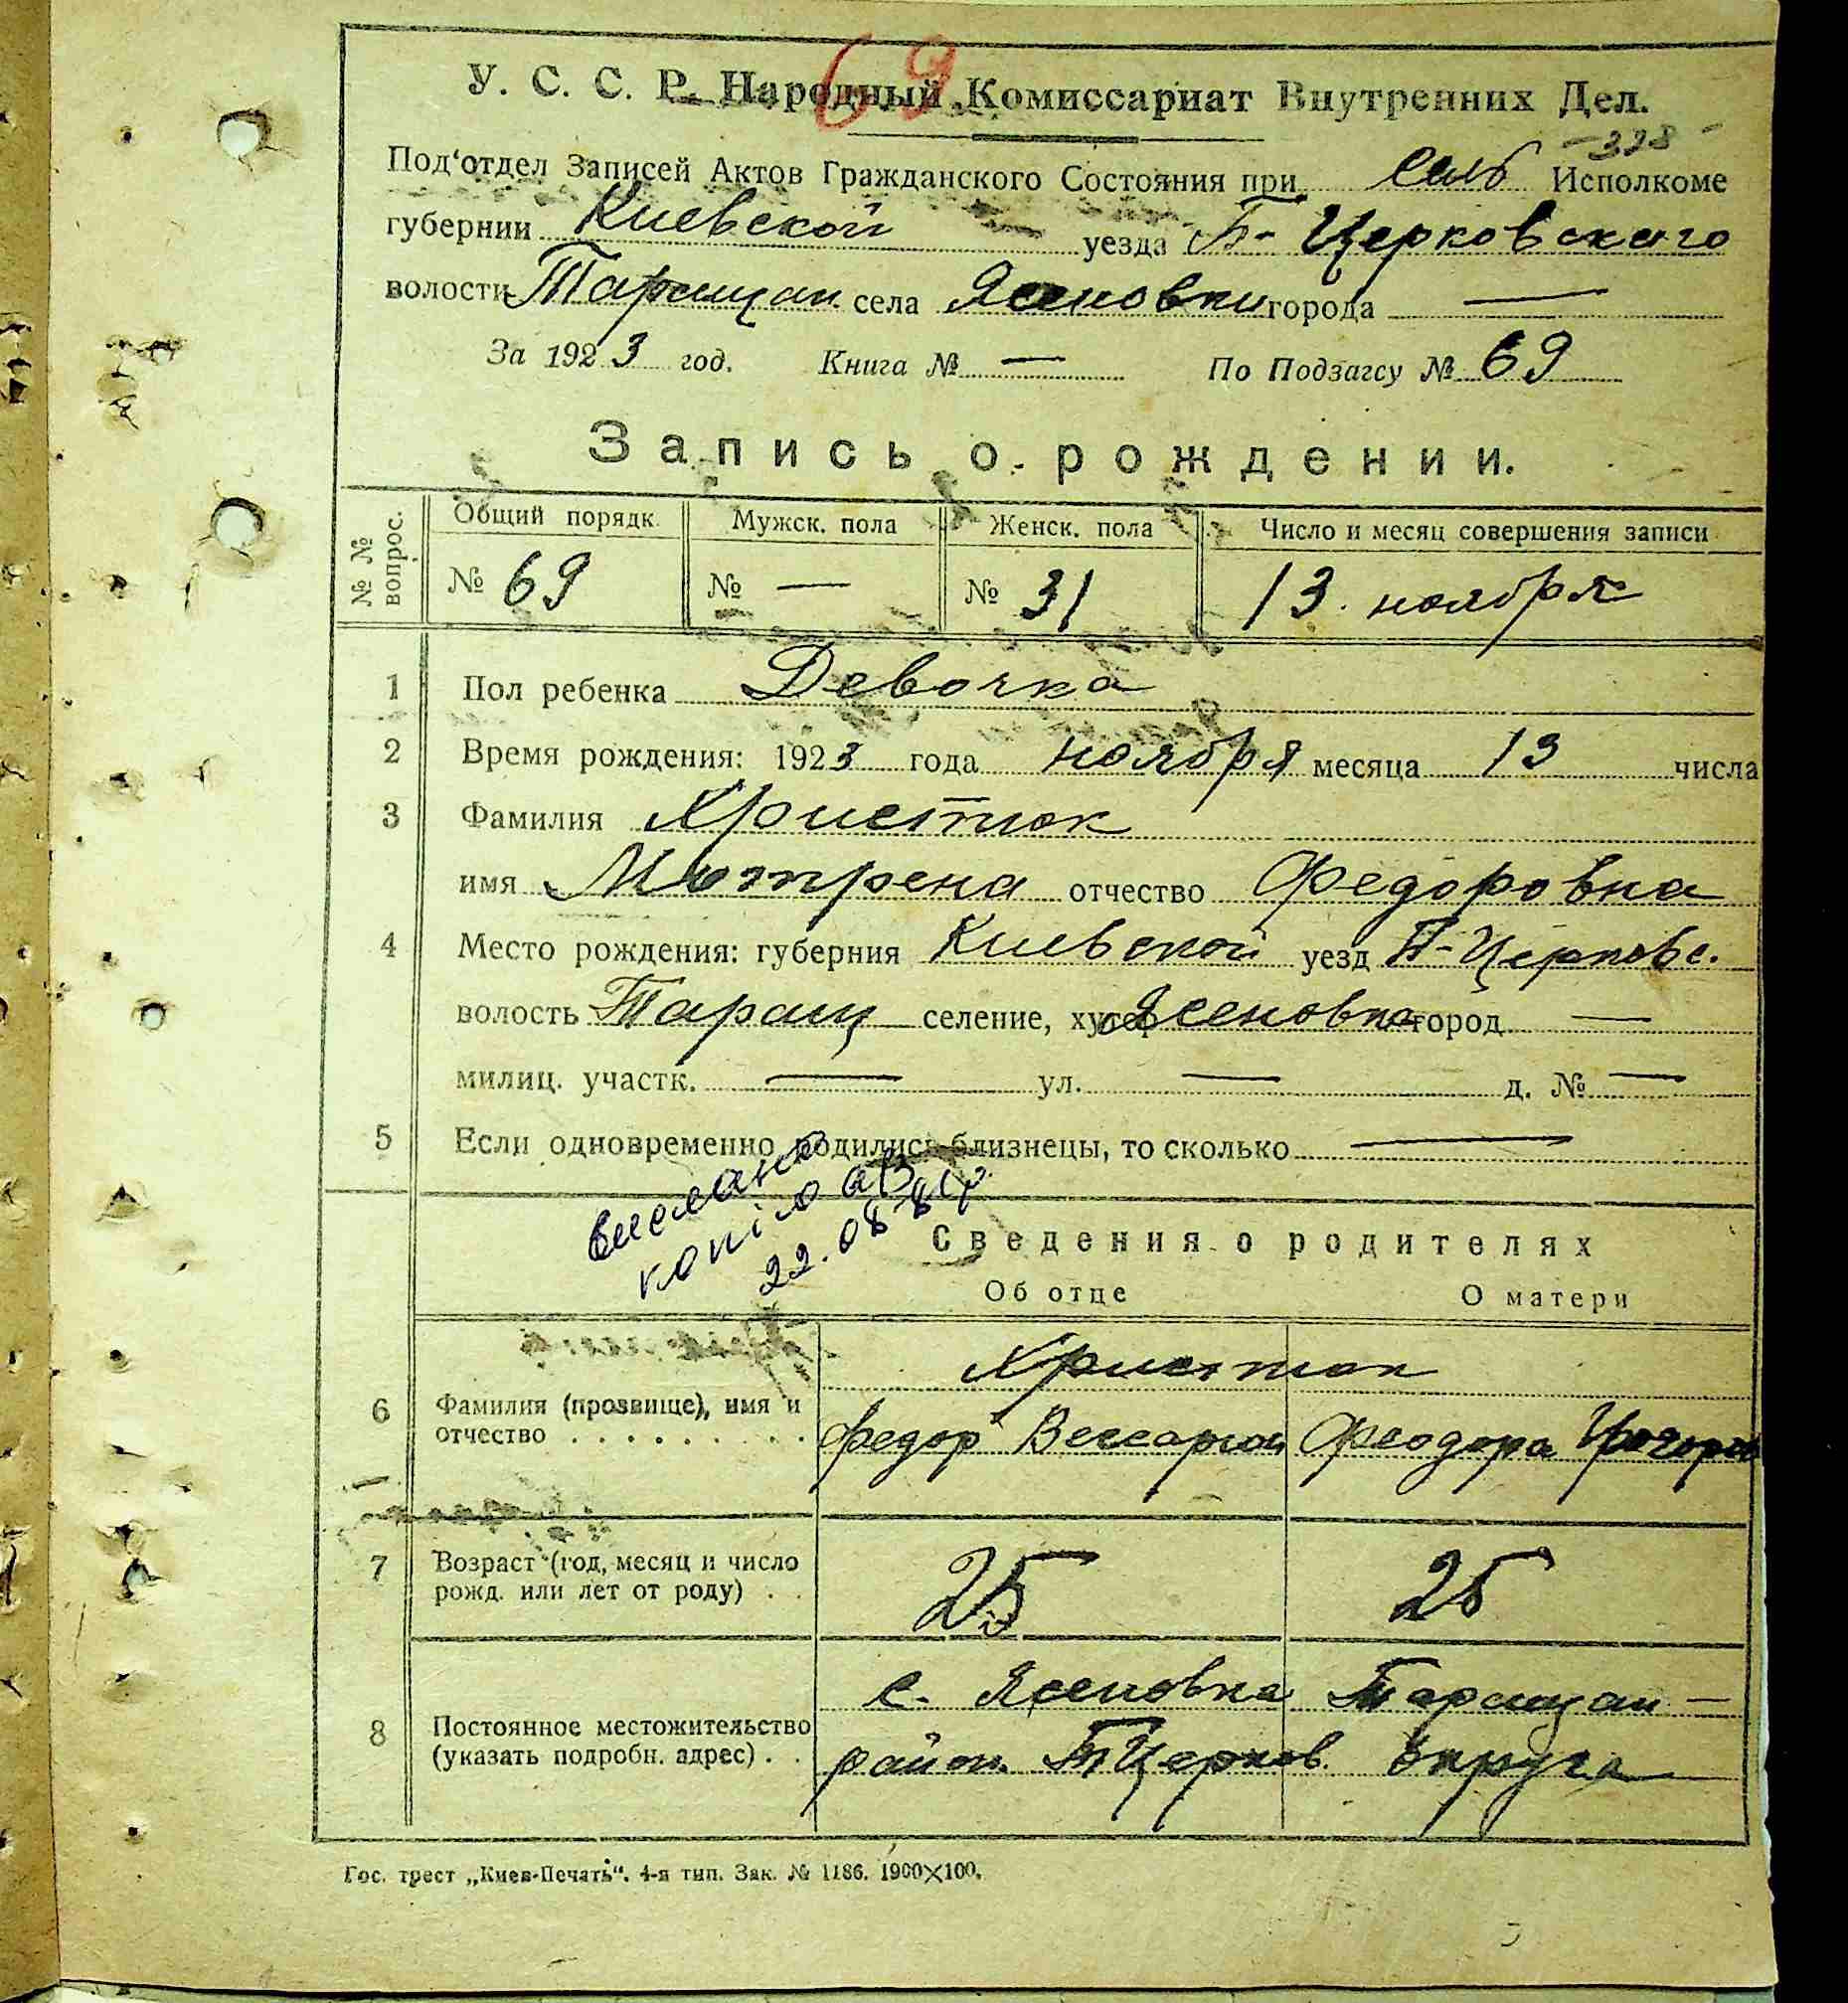 69
У. С. С. Р. Народный Комиссариат Внутренних Дел.
- 328 -
Под‘отдел Записей Актов Гражданского Состояния при Сель Исполкоме
губернии Киевской уезда Б- Церковского
волости Таращан села Ясеновки города —
За 1923 год. Книга № — По Подзагсу № 69
Запись о рождении.
№ № вопрос. Общий порядк. Мужск. пола Женск. пола Число и месяц совершения записи
№ 69 № — № 31 13. ноября
1 Пол ребенка Девочка
2 Время рождения: 1923 года ноября месяца 13 числа
3 Фамилия Христюк
имя Мотрена отчество Федоровна
4 Место рождения: губерния Киевской уезд Б-Церковс.
волость Таращ селение, хутор Ясеновка город —
милиц. участк. — ул. — д. № —
5 Если одновременно родились близнецы, то сколько —
вислано
копію аВ
22.08.
Сведения о родителях
Об отце О матери
Христюк
6 Фамилия (прозвище), имя и
отчество . . . . . . . . . Федор Вессарион Феодора Григорьев
7 Возраст (год, месяц и число
рожд. или лет от роду) . . 25 25
с. Ясеновка Таращан —
8 Постоянное местожительство
(указать подробн. адрес) . . район. Б Церков. округа
Гос. трест „Киев-Печать“. 4-я тип. Зак. № 1186. 1900×100.